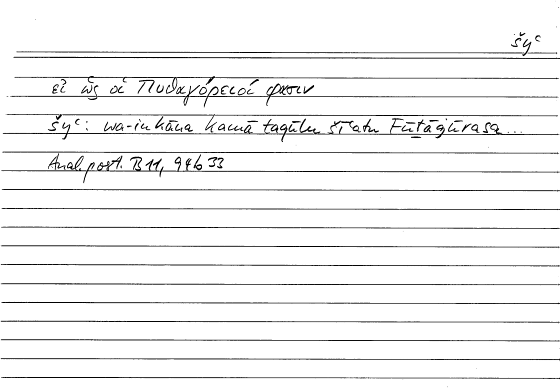 šyʿ
εἰ ὥς οἱ Πυθαγόρειοί φασιν
šyʿ: wa-in kāna kamā taqūlu šīʿatu Fūṯāġūrasa...
Anal. post. B 11, 94b33